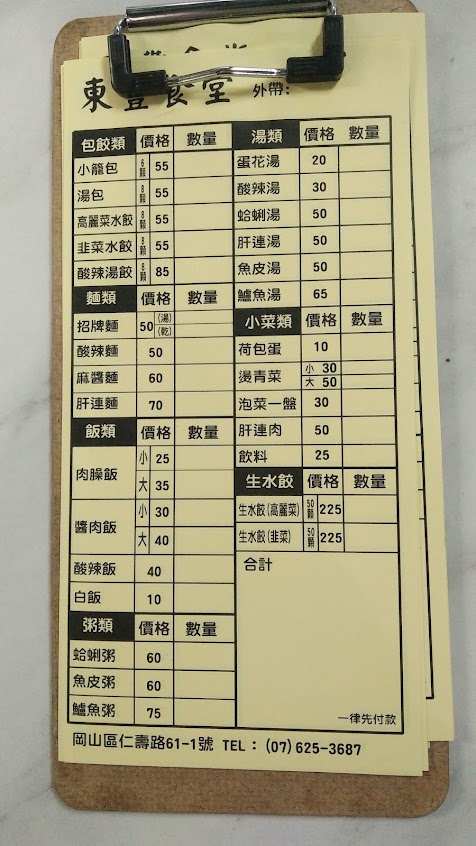 東豐食堂 外帶:
包餃類 價格 數量
小籠包 6顆 55
湯包 8顆 55
高麗菜水餃 8顆 55
韭菜水餃 8顆 55
酸辣湯餃 8顆 85
麵類 價格 數量
招牌麵 50 (湯) (乾)
酸辣麵 50
麻醬麵 60
肝連麵 70
飯類 價格 數量
肉臊飯 小 25
大 35
醬肉飯 小 30
大 40
酸辣飯 40
白飯 10
粥類 價格 數量
蛤蜊粥 60
魚皮粥 60
鱸魚粥 75
湯類 價格 數量
蛋花湯 20
酸辣湯 30
蛤蜊湯 50
肝連湯 50
魚皮湯 50
鱸魚湯 65
小菜類 價格 數量
荷包蛋 10
燙青菜 小 30
大 50
泡菜一盤 30
肝連肉 50
飲料 25
生水餃 價格 數量
生水餃(高麗菜) 50顆 225
生水餃(韭菜) 50顆 225
合計
一律先付款
岡山區仁壽路61-1號 TEL：(07)625-3687